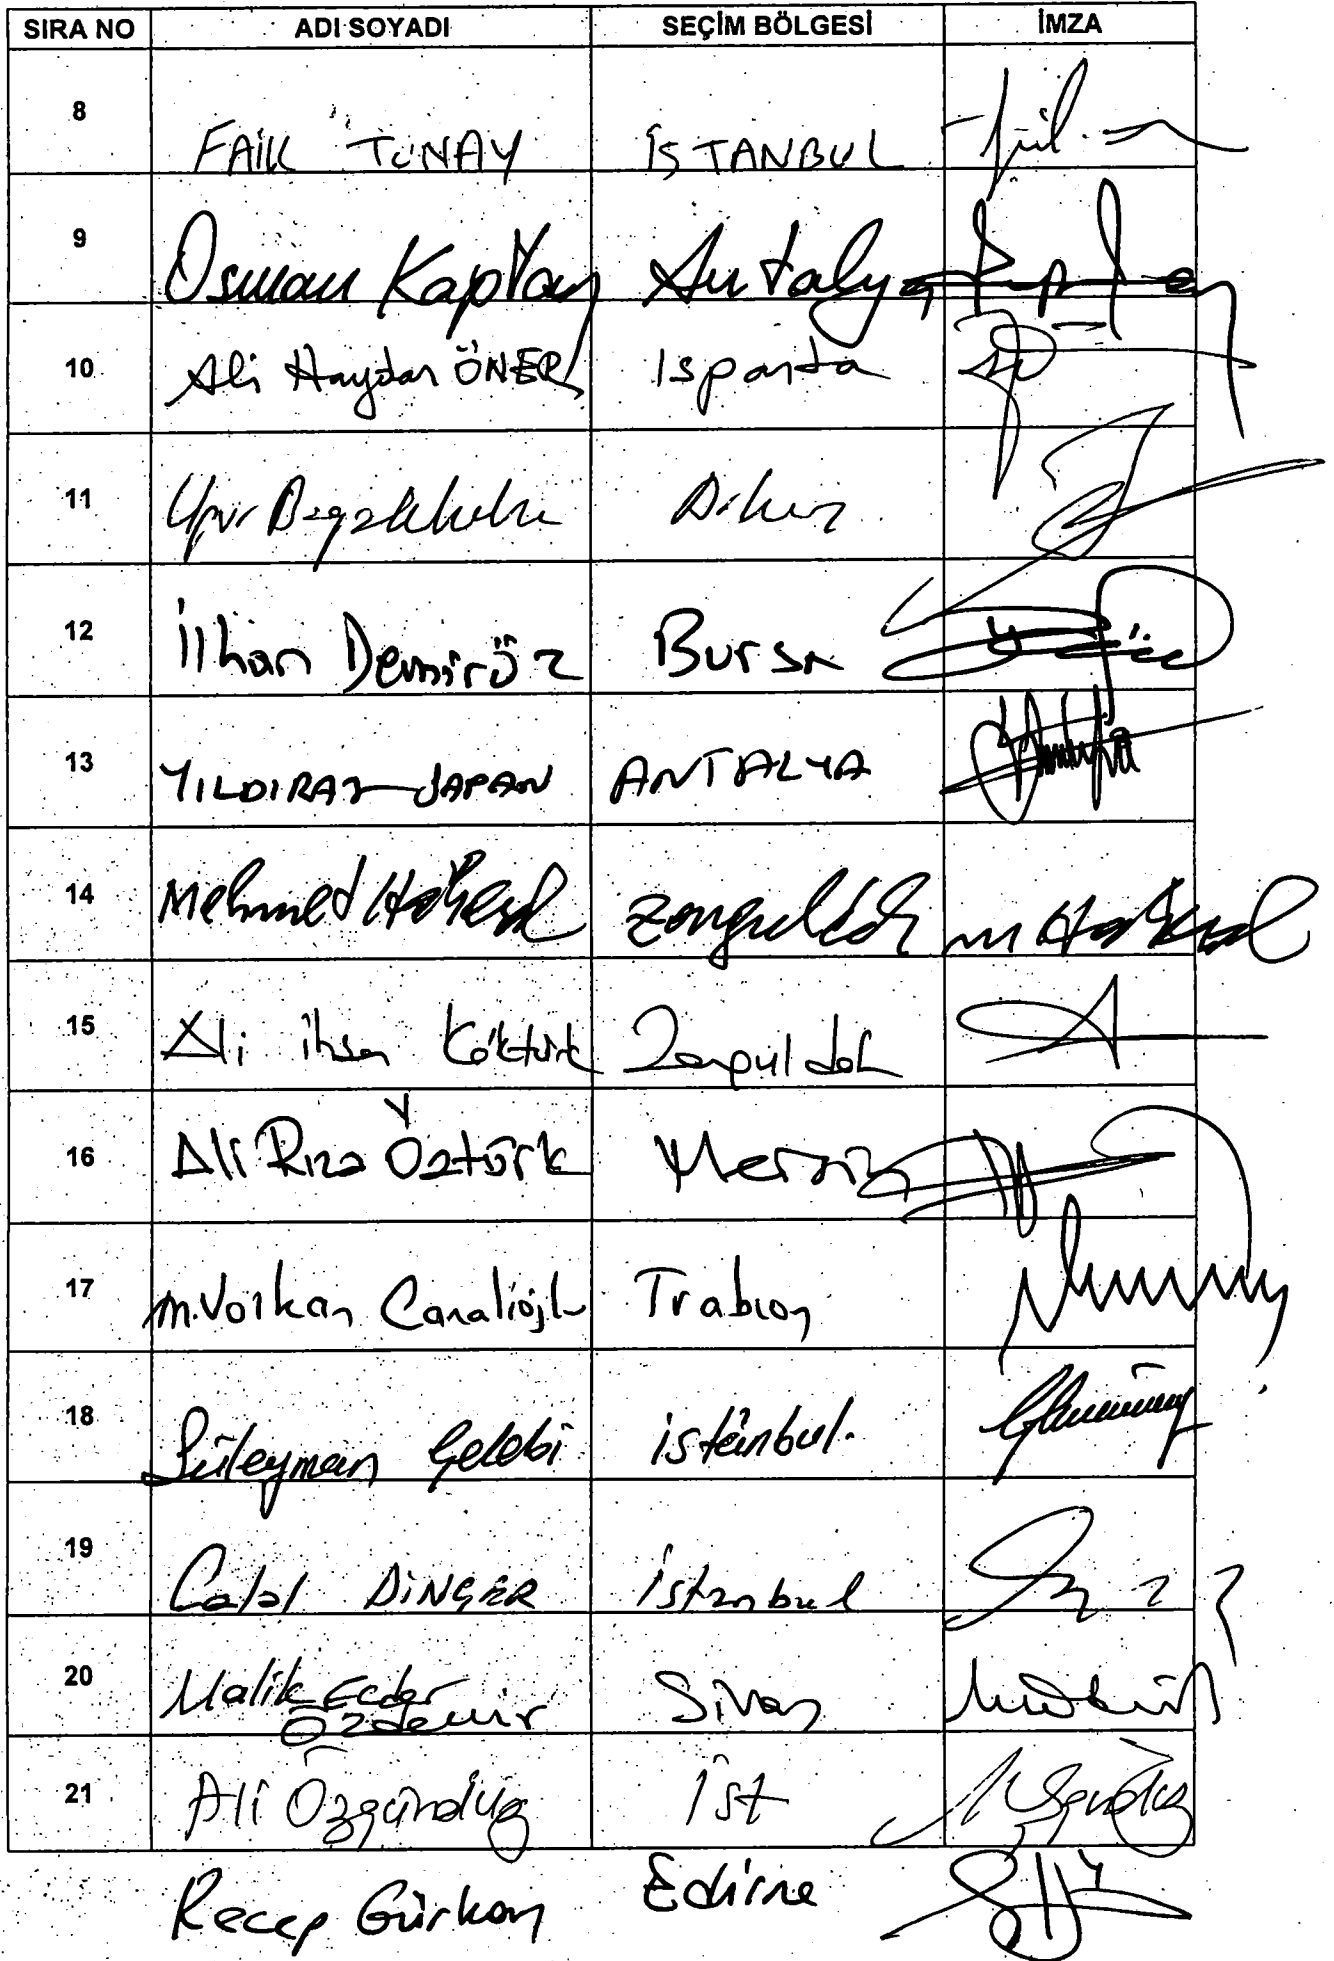 SIRA NO ADI SOYADI SEÇİM BÖLGESİ İMZA
8 FAİK TUNAY İSTANBUL
9 Osman Kaptan Antalya
10 Ali Haydar ÖNER Isparta
11
12 İlhan Demiröz Bursa
13 YILDIRAY SAPAN ANTALYA
14 Mehmet Haberal Zonguldak M Haberal
15 Ali İhsan Köktürk Zonguldak
16 Ali Rıza Öztürk Mersin
17 M. Volkan Canalioğlu Trabzon
18 Süleyman Çelebi İstanbul.
19 Celal DİNÇER İstanbul
20 Malik Ecder Sivas
Özdemir
21 Ali Özgündüz İst
Recep Gürkan Edirne